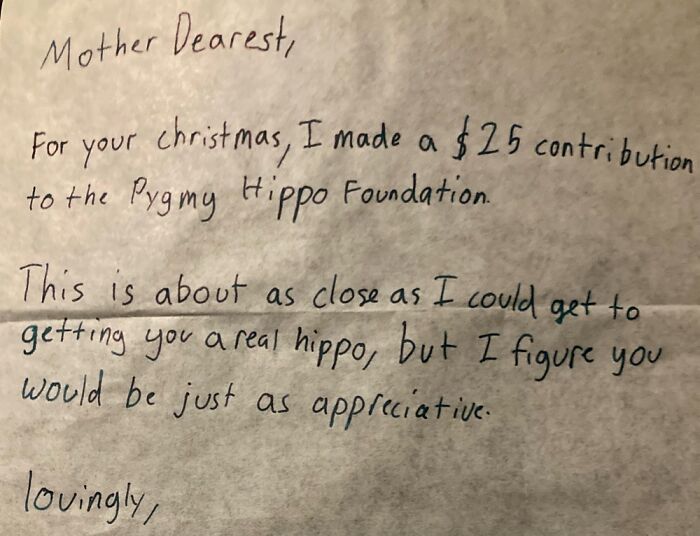 Mother Dearest,
For your christmas, I made a $25 contribution
to the Pygmy Hippo Foundation.
This is about as close as I could get to
getting you a real hippo, but I figure you
would be just as appreciative.
lovingly,